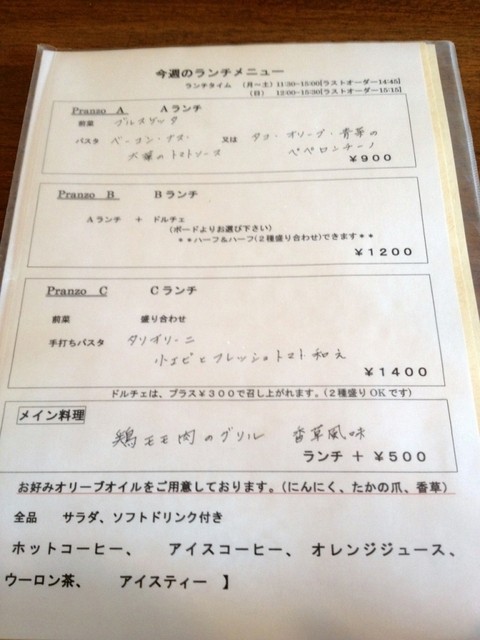 今週のランチメニュー
ランチタイム (月～土) 11:30-15:00[ラストオーダー14:45]
(日) 12:00-15:30[ラストオーダー15:15]
Pranzo A Aランチ
前菜 ブルスケッタ
パスタ ベーコン・ナス・ 又は タコ・オリーブ・青菜の
大葉のトマトソース ペペロンチーノ
￥900
Pranzo B Bランチ
Aランチ + ドルチェ
(ボードよりお選び下さい)
**ハーフ&ハーフ(2種盛り合わせ)できます**
￥1200
Pranzo C Cランチ
前菜 盛り合わせ
手打ちパスタ タリオリーニ
小エビとフレッシュトマト和え
￥1400
ドルチェは、プラス￥300で召し上がれます。(2種盛りOKです)
メイン料理
鶏モモ肉のグリル 香草風味
ランチ + ￥500
お好みオリーブオイルをご用意しております。(にんにく、たかの爪、香草)
全品 サラダ、ソフトドリンク付き
ホットコーヒー、 アイスコーヒー、オレンジジュース、
ウーロン茶、 アイスティー 】